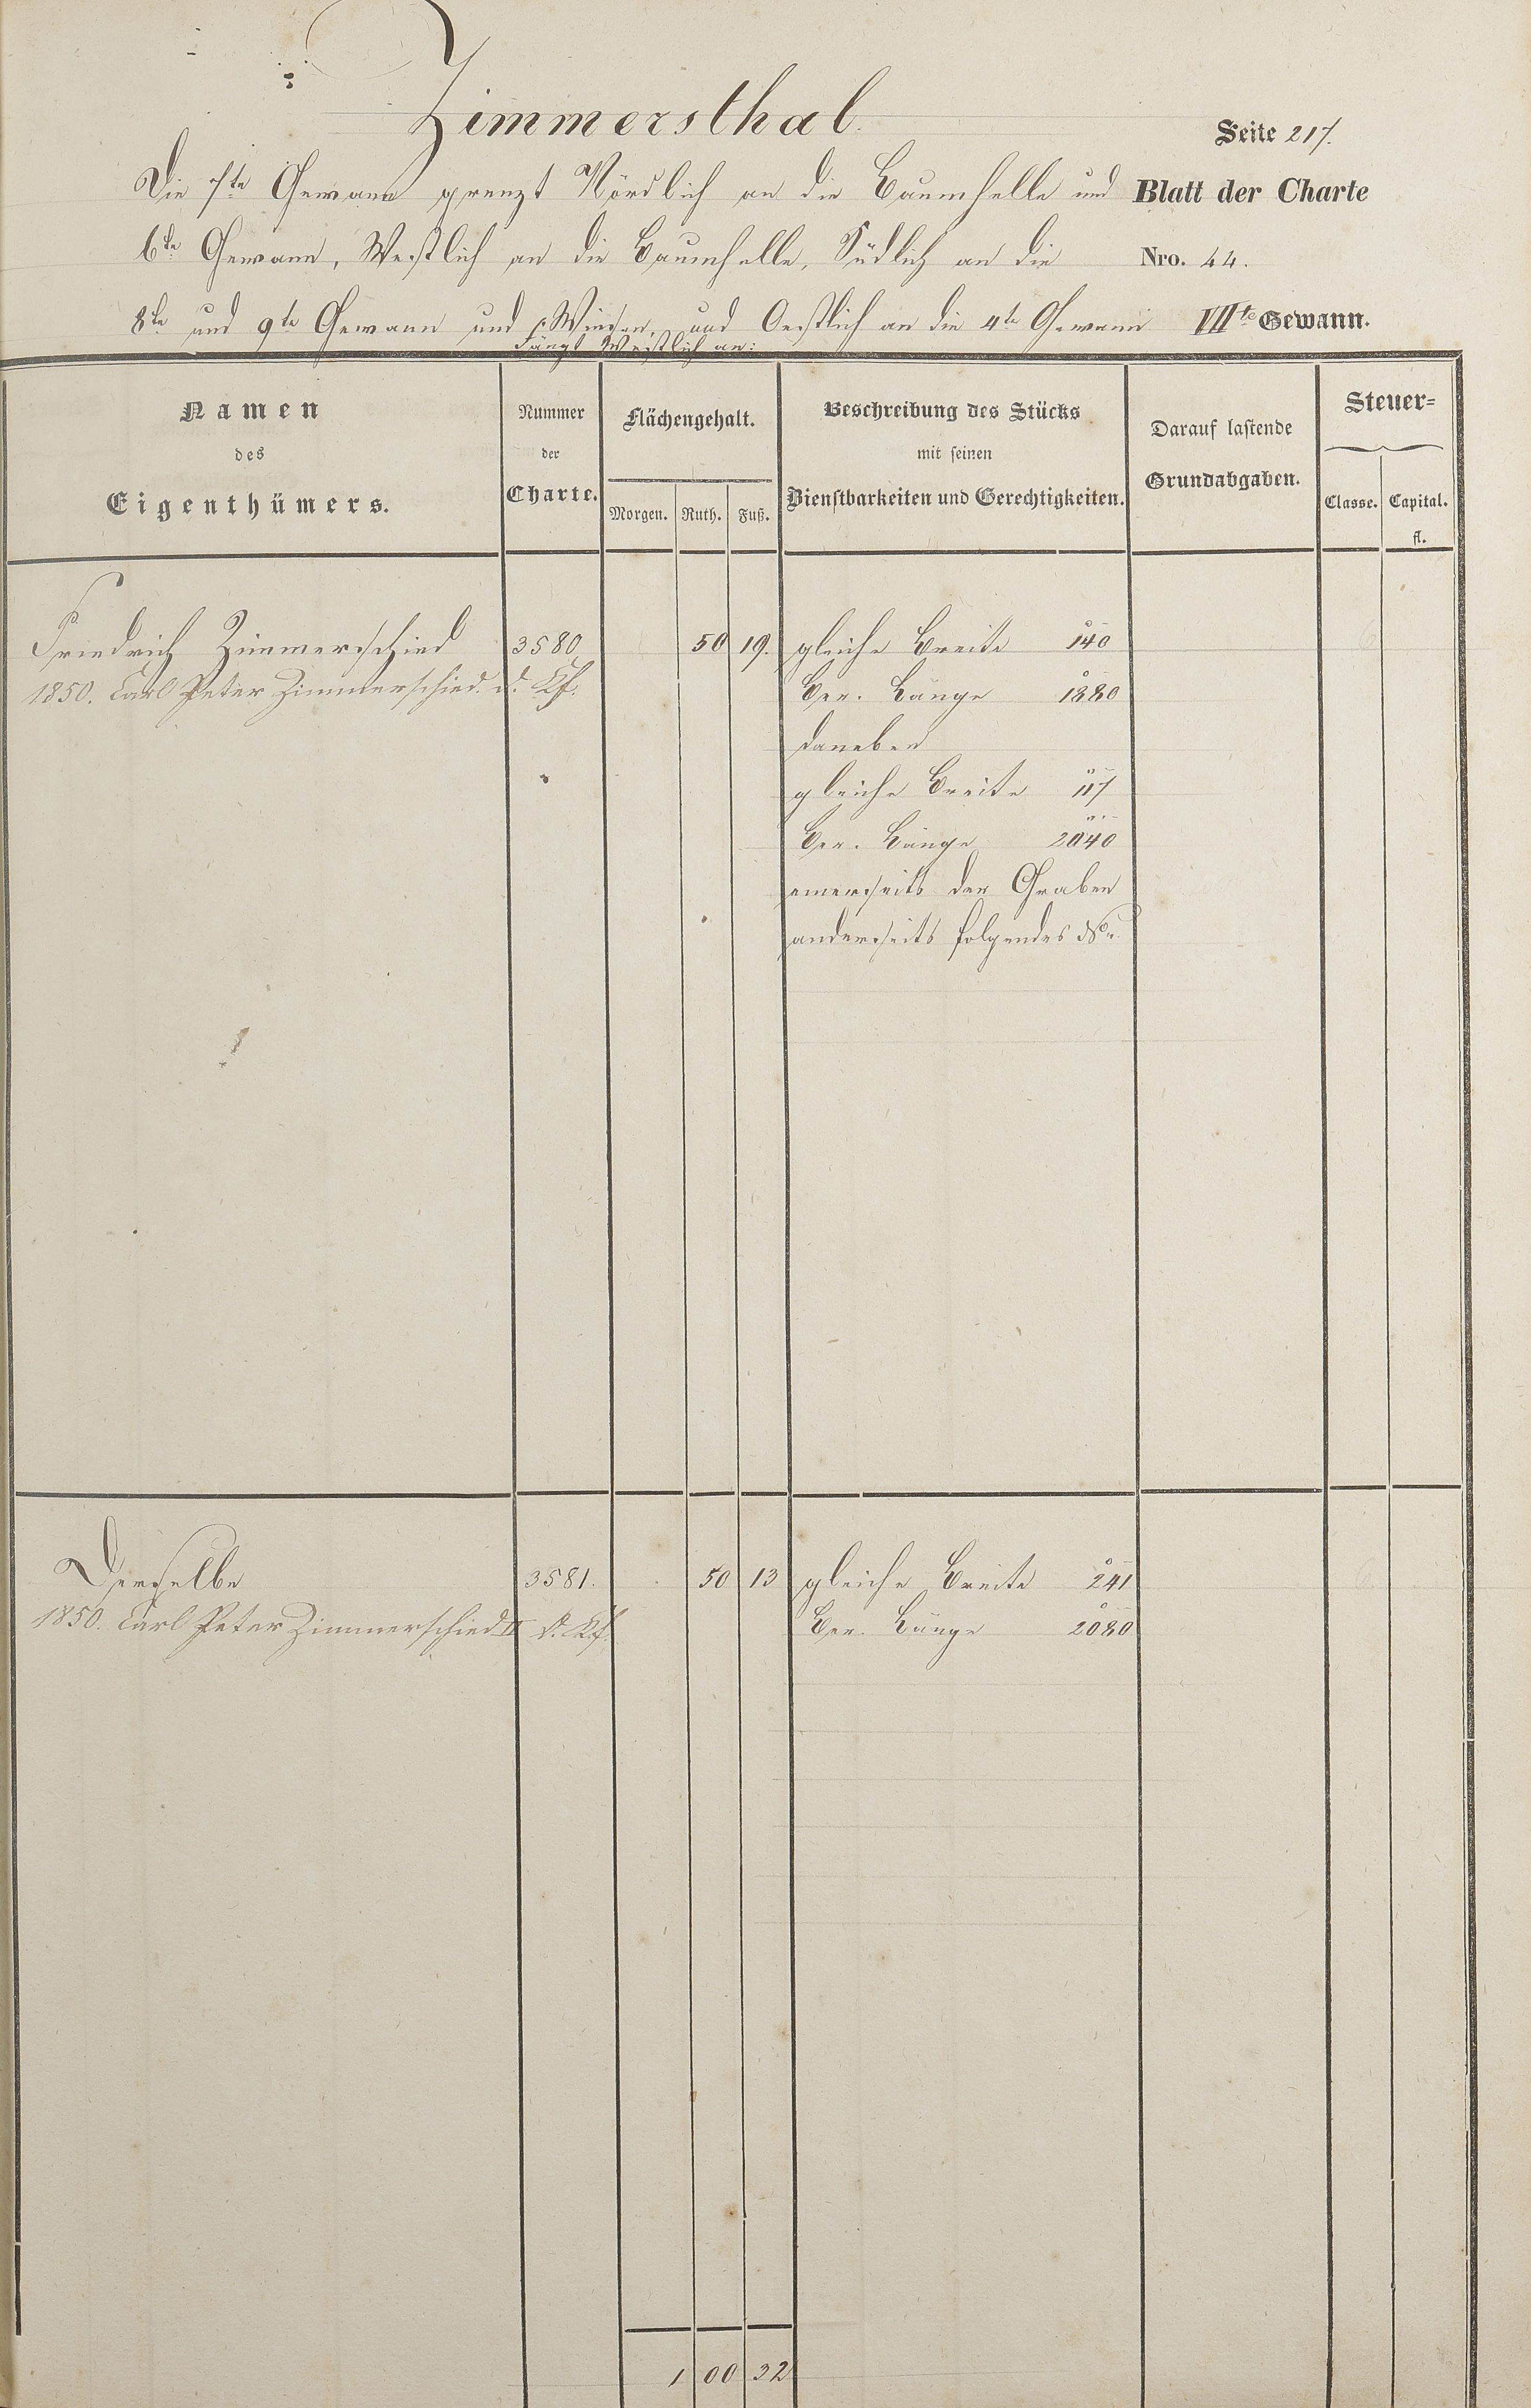 Zimmersthal.
Seite 217.
Die 7te Gewann grenzt Nördlich an die Baumhelle und
Blatt der Charte
6te Gewann, Westlich an die Baumhelle, Südlich an die
Nro. 44.
8te und 9te Gewann und Wiesen, und Oestlich an die 4te Gewann
VIIte Gewann.
Fängt Westlich an:
Namen
des
Eigenthümers.
Nummer
der
Charte.
Flächengehalt.
Morgen. Ruth. Fuß.
Beschreibung des Stücks
mit seinen
Dienstbarkeiten und Gerechtigkeiten.
Darauf lastende
Grundabgaben.
Steuer=
Classe. Capital.
fl.
Friedrich Zimmerschied 3580 50 19. gleiche Breite 140
1850. Carl Peter Zimmerschied d. Kf. Ber. Länge 1880
daneben
gleiche Breite 117
Ber. Länge 2040
einerseits der Graben
anderseits folgendes No.
Derselbe 3581. 50 13 gleiche Breite 241
1850. Carl Peter Zimmerschied II d. Kf. Ber. Länge 2080
1 00 32